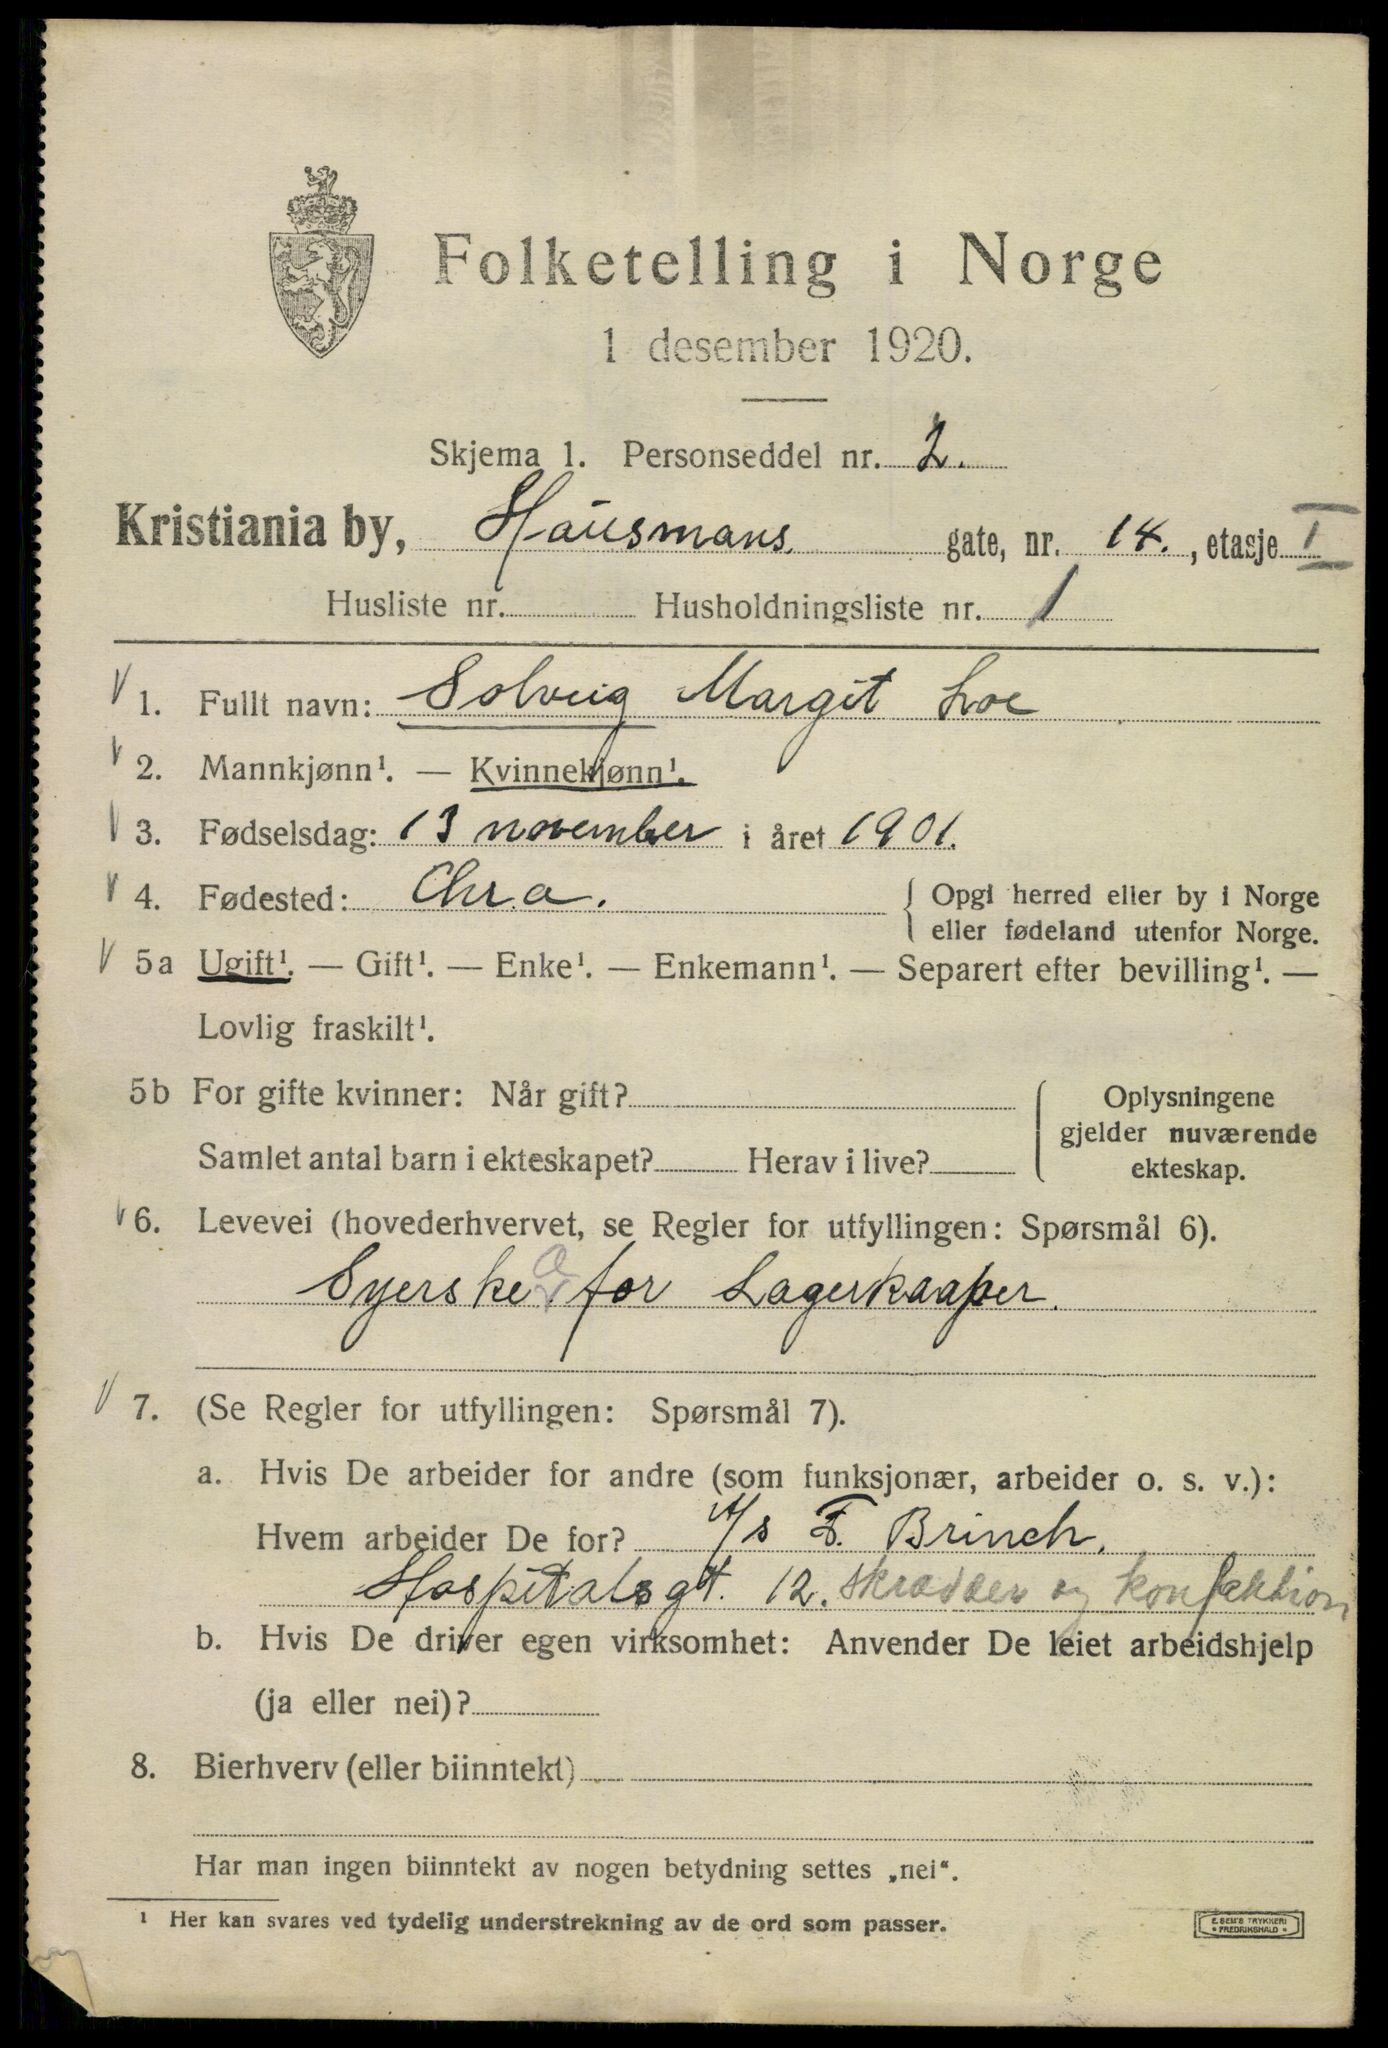 Folketelling i Norge
1 desember 1920.
Skjema 1. Personseddel nr. 2.
Kristiania by, Hausmans gate, nr. 14., etasje I
Husliste nr. Husholdningsliste nr. 1
1. Fullt navn: Solveig Margit Loe
2. Mannkjønn¹. — Kvinnekjønn¹.
3. Fødselsdag: 13 november i året 1901.
4. Fødested: Chr.a. { Opgi herred eller by i Norge
eller fødeland utenfor Norge.
5a Ugift¹. — Gift¹. — Enke¹. — Enkemann¹. — Separert efter bevilling¹. —
Lovlig fraskilt¹.
5b For gifte kvinner: Når gift? { Oplysningene
gjelder nuværende
Samlet antal barn i ekteskapet? Herav i live? ekteskap.
6. Levevei (hovederhvervet, se Regler for utfyllingen: Spørsmål 6).
Syerske for Lagerkaaper.
7. (Se Regler for utfyllingen: Spørsmål 7).
a. Hvis De arbeider for andre (som funksjonær, arbeider o. s. v.):
Hvem arbeider De for? A/s F. Brinch,
Hospitalsgt. 12. skrædder og konfektion
b. Hvis De driver egen virksomhet: Anvender De leiet arbeidshjelp
(ja eller nei)?
8. Bierhverv (eller biinntekt)
Har man ingen biinntekt av nogen betydning settes „nei“.
¹ Her kan svares ved tydelig understrekning av de ord som passer.
E. SEM'S TRYKKERI
• FREDRIKSHALD •